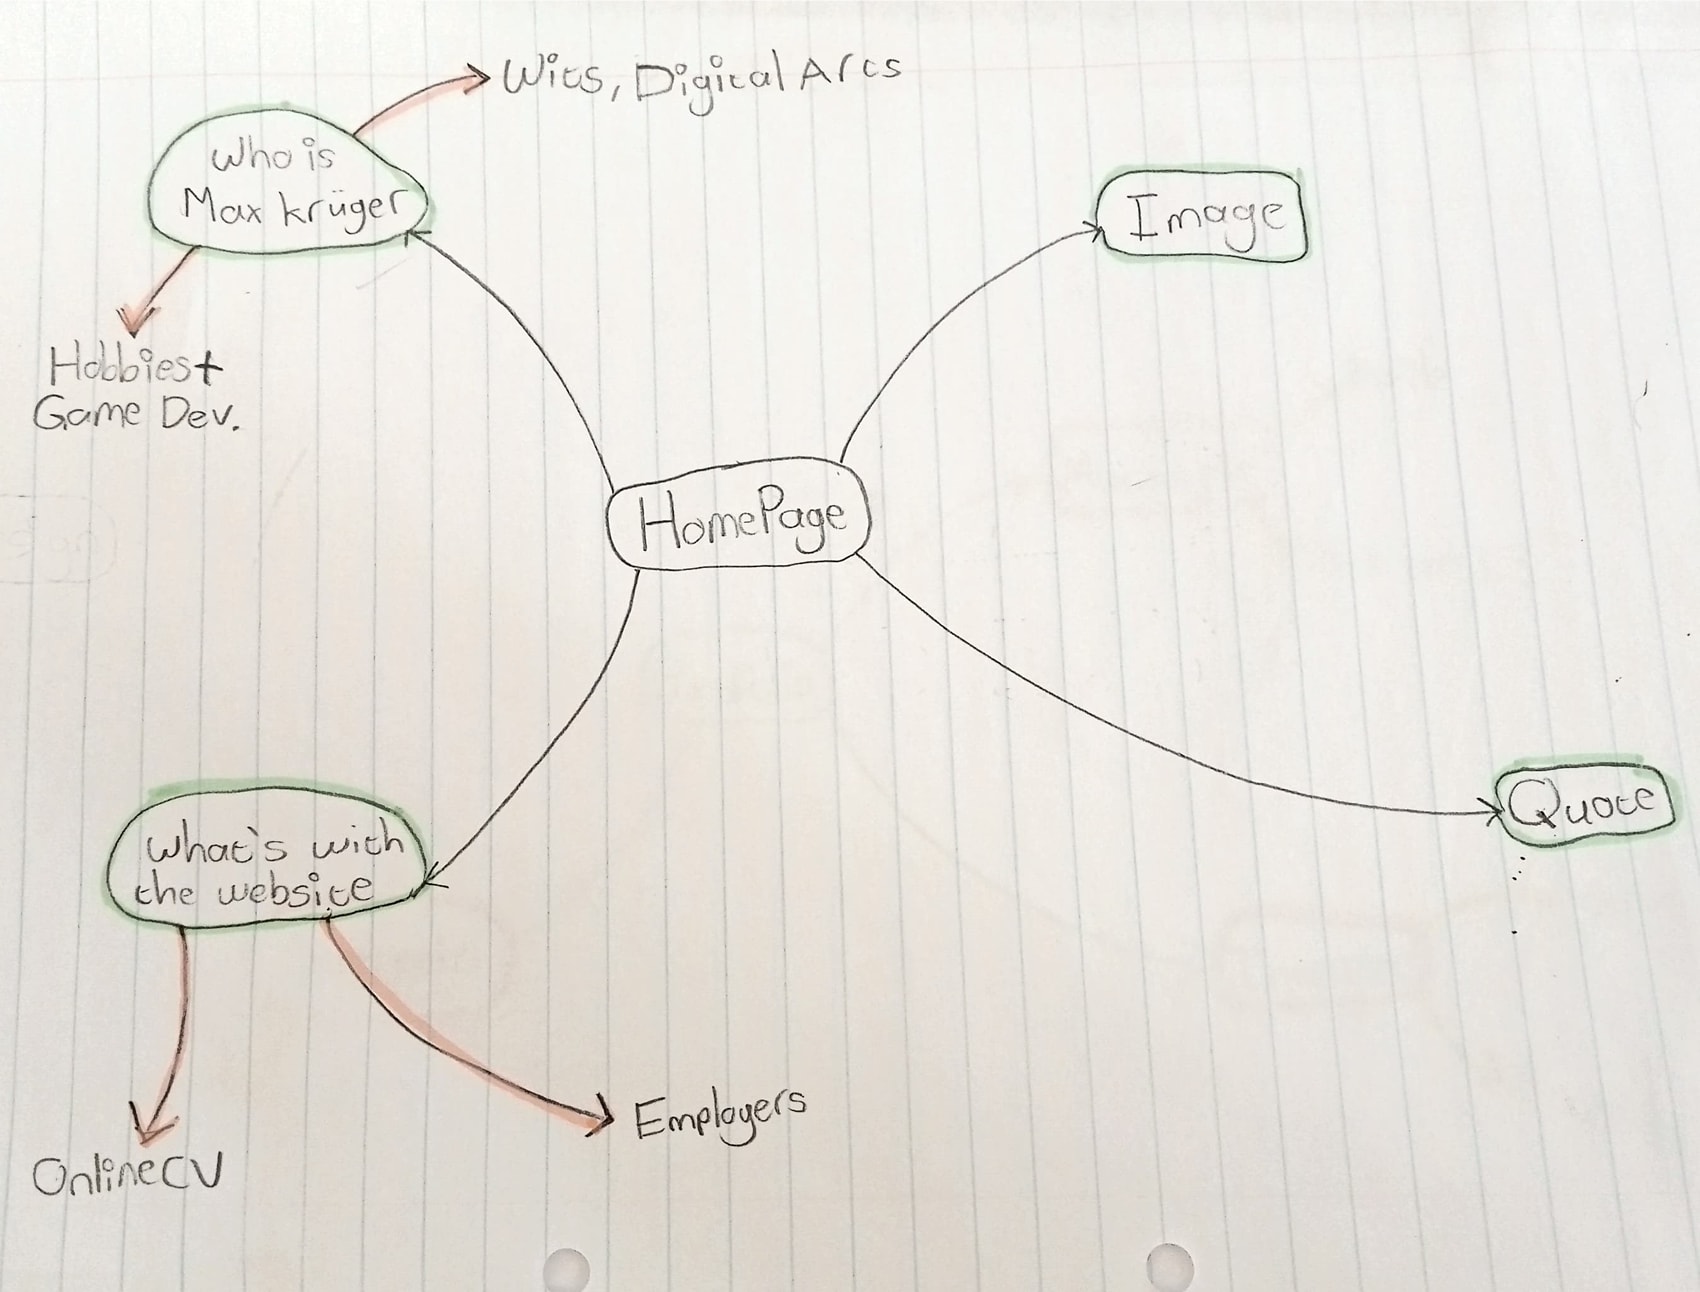 Wits, Digital Arts
Who is
Max Krüger
Image
Hobbies+
Game Dev.
HomePage
Quote
What's with
the website
Employers
Online CV